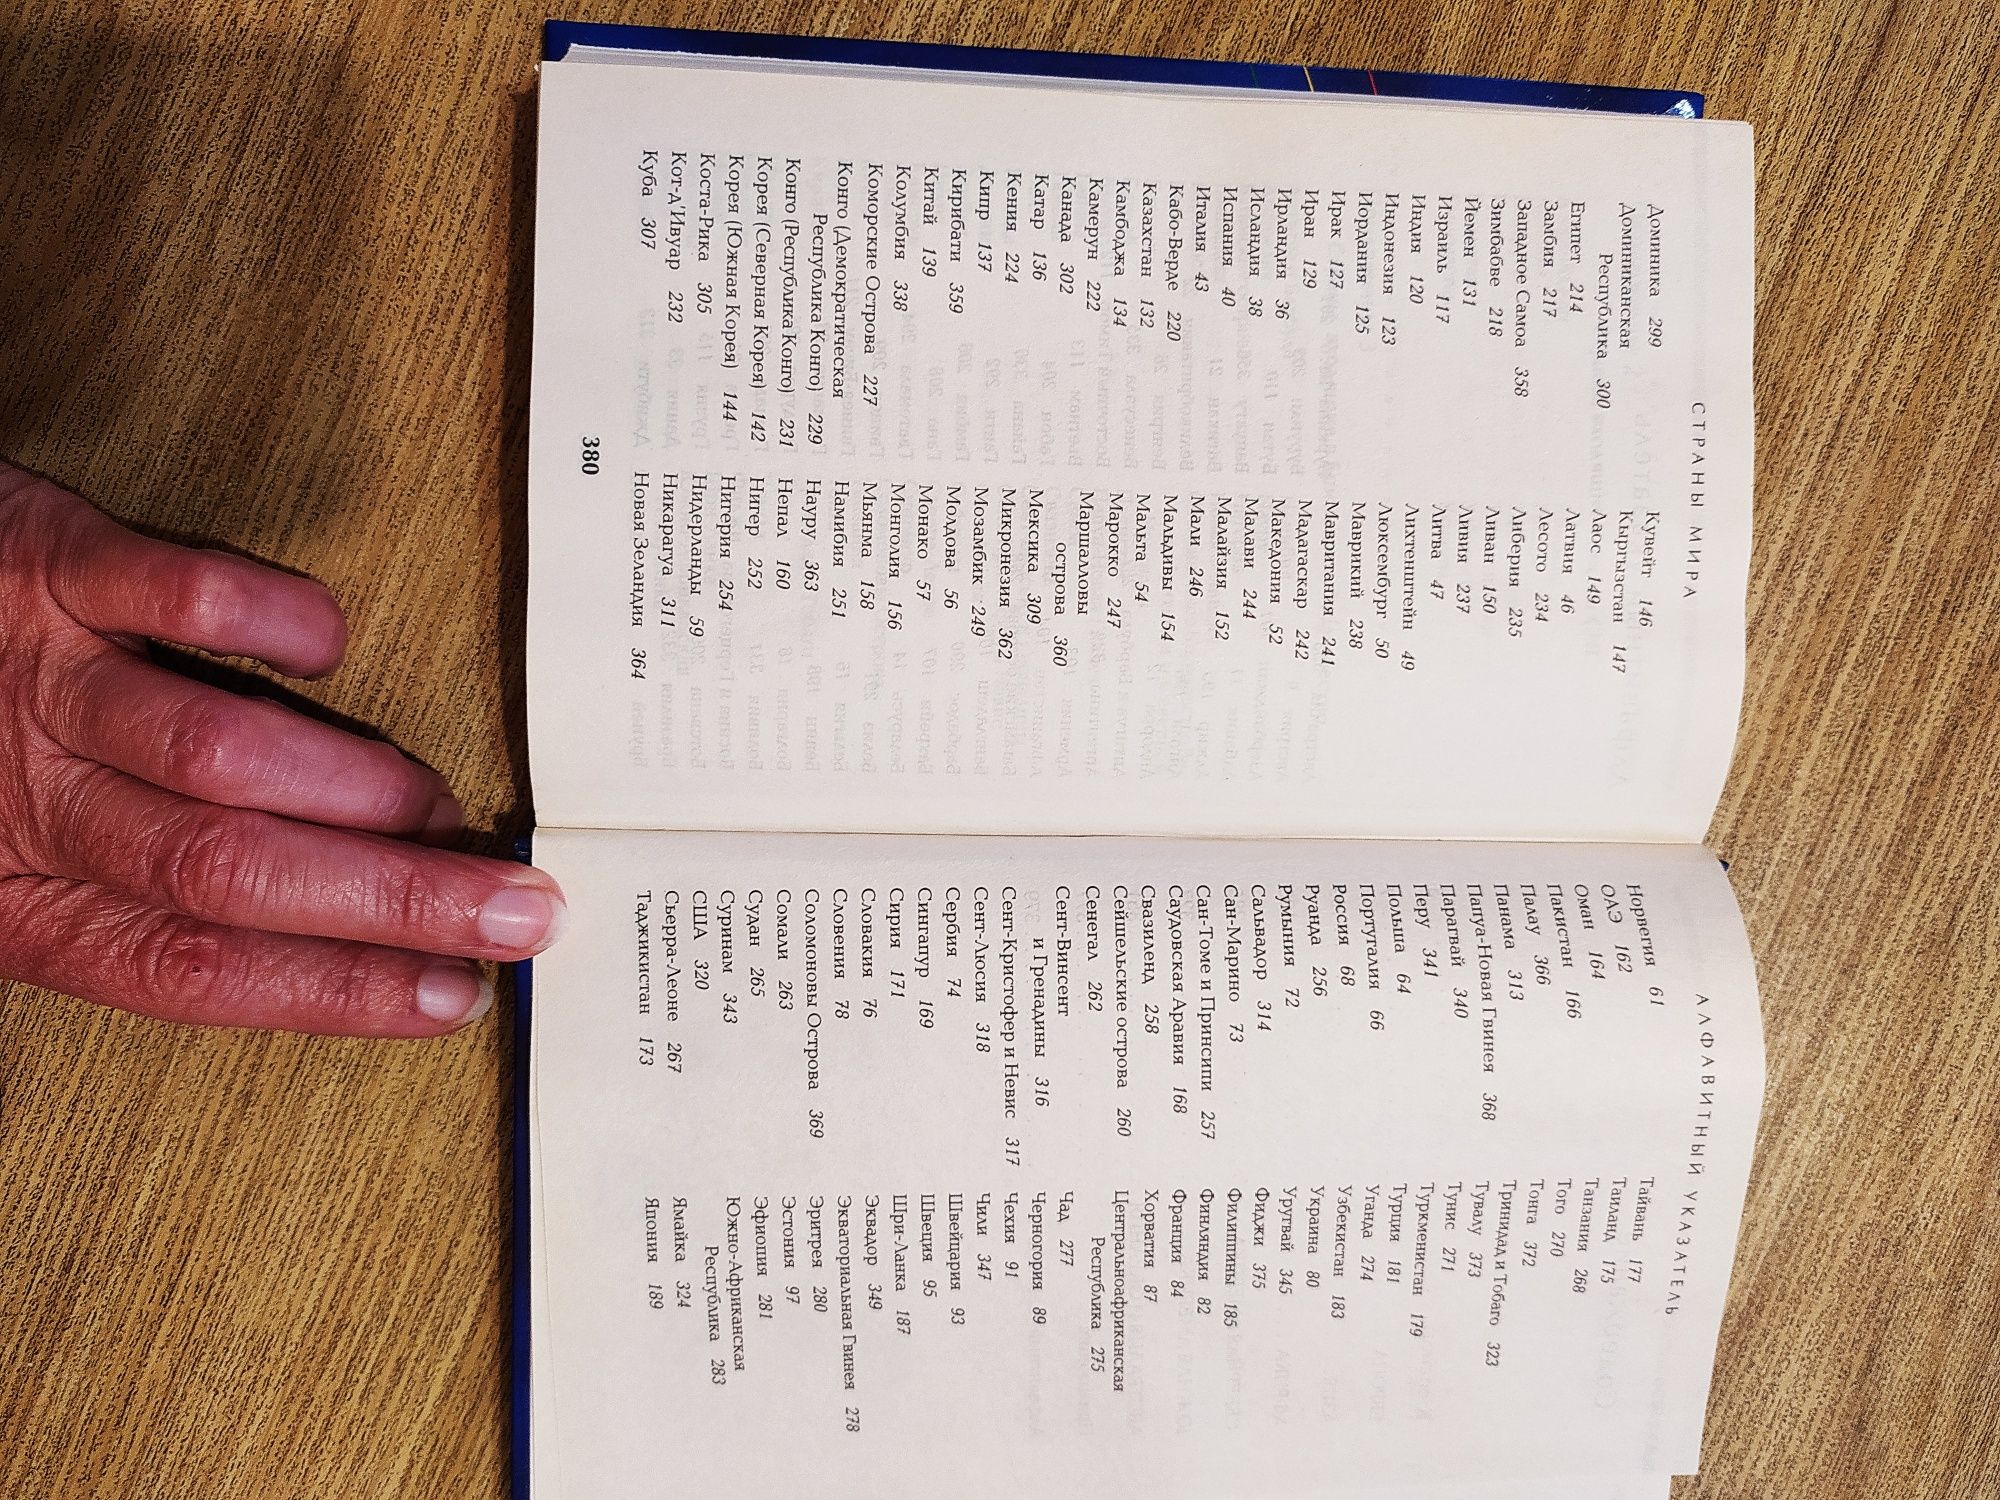 СТРАНЫ МИРА
Доминика 299
Доминиканская
Республика 300
Египет 214
Замбия 217
Западное Самоа 358
Зимбабве 218
Йемен 131
Израиль 117
Индия 120
Индонезия 123
Иордания 125
Ирак 127
Иран 129
Ирландия 36
Исландия 38
Испания 40
Италия 43
Кабо-Верде 220
Казахстан 132
Камбоджа 134
Камерун 222
Канада 302
Катар 136
Кения 224
Кипр 137
Кирибати 359
Китай 139
Колумбия 338
Коморские Острова 227
Конго (Демократическая
Республика Конго) 229
Конго (Республика Конго) 231
Корея (Северная Корея) 142
Корея (Южная Корея) 144
Коста-Рика 305
Кот-д'Ивуар 232
Куба 307
Кувейт 146
Кыргызстан 147
Лаос 149
Латвия 46
Лесото 234
Либерия 235
Ливан 150
Ливия 237
Литва 47
Лихтенштейн 49
Люксембург 50
Маврикий 238
Мавритания 241
Мадагаскар 242
Македония 52
Малави 244
Малайзия 152
Мали 246
Мальдивы 154
Мальта 54
Марокко 247
Маршалловы
острова 360
Мексика 309
Микронезия 362
Мозамбик 249
Молдова 56
Монако 57
Монголия 156
Мьянма 158
Намибия 251
Науру 363
Непал 160
Нигер 252
Нигерия 254
Нидерланды 59
Никарагуа 311
Новая Зеландия 364
380
АЛФАВИТНЫЙ УКАЗАТЕЛЬ
Норвегия 61
ОАЭ 162
Оман 164
Пакистан 166
Палау 366
Панама 313
Папуа-Новая Гвинея 368
Парагвай 340
Перу 341
Польша 64
Португалия 66
Россия 68
Руанда 256
Румыния 72
Сальвадор 314
Сан-Марино 73
Сан-Томе и Принсипи 257
Саудовская Аравия 168
Свазиленд 258
Сейшельские острова 260
Сенегал 262
Сент-Винсент
и Гренадины 316
Сент-Кристофер и Невис 317
Сент-Люсия 318
Сербия 74
Сингапур 169
Сирия 171
Словакия 76
Словения 78
Соломоновы Острова 369
Сомали 263
Судан 265
Суринам 343
США 320
Сьерра-Леоне 267
Таджикистан 173
Тайвань 177
Таиланд 175
Танзания 268
Того 270
Тонга 372
Тринидад и Тобаго 323
Тувалу 373
Тунис 271
Туркменистан 179
Турция 181
Уганда 274
Узбекистан 183
Украина 80
Уругвай 345
Фиджи 375
Филиппины 185
Финляндия 82
Франция 84
Хорватия 87
Центральноафриканская
Республика 275
Чад 277
Черногория 89
Чехия 91
Чили 347
Швейцария 93
Швеция 95
Шри-Ланка 187
Эквадор 349
Экваториальная Гвинея 278
Эритрея 280
Эстония 97
Эфиопия 281
Южно-Африканская
Республика 283
Ямайка 324
Япония 189